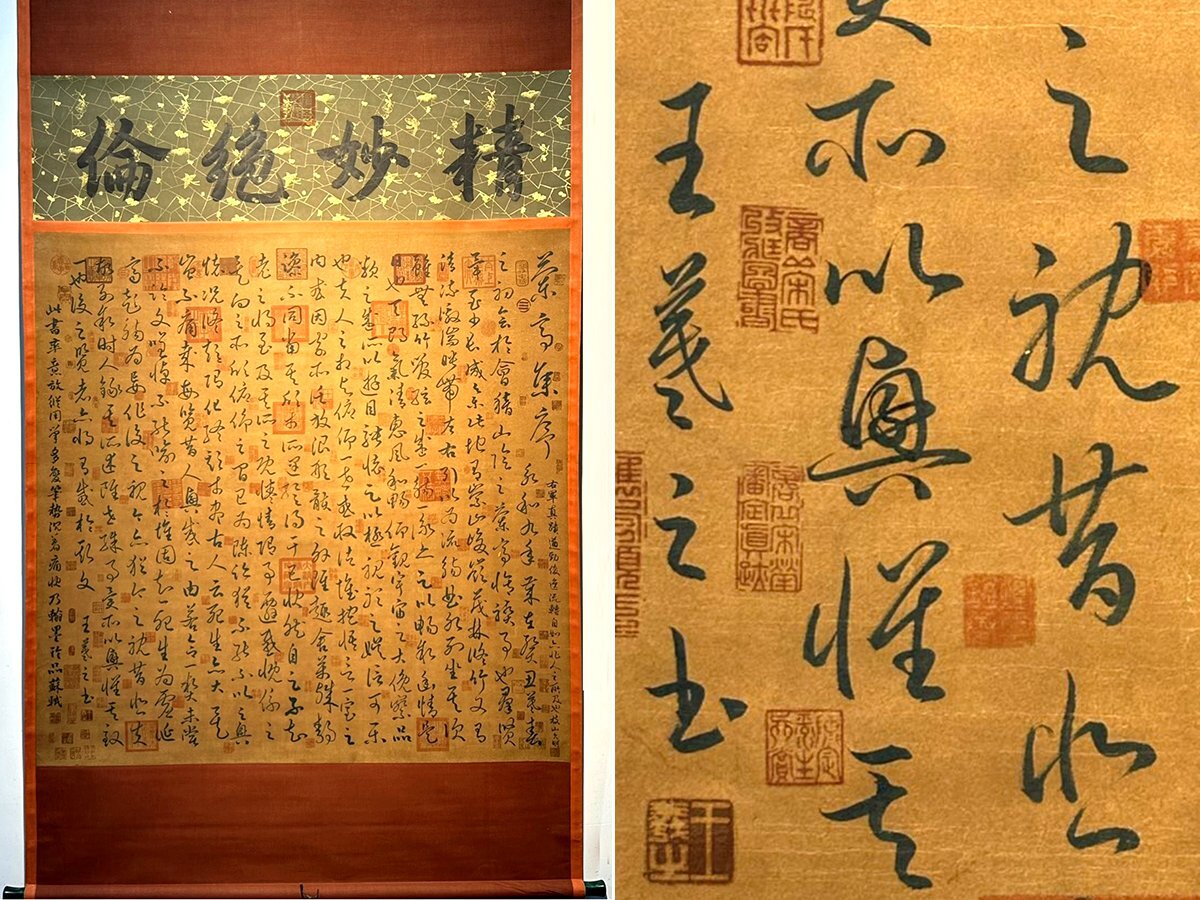 精妙絕倫
蘭亭集序 永和九年歲在癸丑暮春
之初會於會稽山陰之蘭亭脩禊事也群賢
畢至少長咸集此地有崇山峻嶺茂林脩竹又有
清流激湍映帶左右引以為流觴曲水列坐其次
雖無絲竹管弦之盛一觴一詠亦足以暢敘幽情是
日也天朗氣清惠風和暢仰觀宇宙之大俯察品
類之盛所以遊目騁懷足以極視聽之娛信可樂
也夫人之相與俯仰一世或取諸懷抱悟言一室之
內或因寄所託放浪形骸之外雖趣舍萬殊靜
躁不同當其欣於所遇暫得於己快然自足不知
老之將至及其所之既倦情隨事遷感慨係之
矣向之所欣俯仰之間已為陳跡猶不能不以之興
懷況脩短隨化終期於盡古人云死生亦大矣
豈不痛哉每覽昔人興感之由若合一契未嘗
不臨文嗟悼不能喻之於懷固知一死生為虛誕
齊彭殤為妄作後之視今亦猶今之視昔悲夫
故列敘時人錄其所述雖世殊事異所以興懷其致
一也後之覽者亦將有感於斯文 王羲之書
此書率意放縱用筆多變筆勢沉着痛快乃翰墨珍品蘇軾
之視昔悲
所以興懷其
王羲之書
王羲之